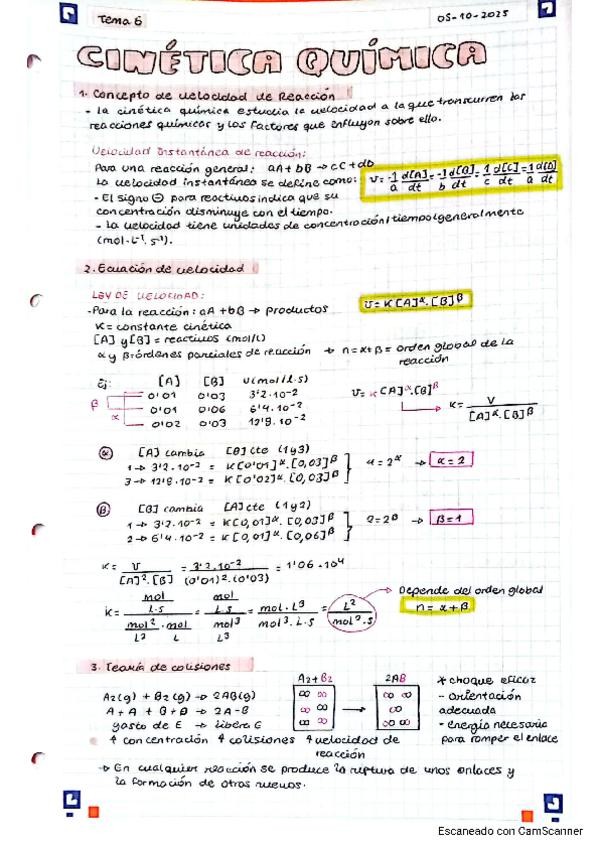 Tema 6
05-10-2025
CINÉTICA QUÍMICA
1. Concepto de velocidad de Reacción
- La cinética química estudia la velocidad a la que transcurren las
reacciones químicas y los factores que influyen sobre ello.
Velocidad Instantánea de reacción:
Para una reacción general: aA + bB → cC + dD
La velocidad instantánea se define como:
v = -1/a d[A]/dt = -1/b d[B]/dt = 1/c d[C]/dt = 1/a d[D]/dt
- El signo ⊖ para reactivos indica que su
concentración disminuye con el tiempo.
- La velocidad tiene unidades de concentración/tiempo (generalmente
(mol·L⁻¹·s⁻¹).
2. Ecuación de velocidad
LEY DE VELOCIDAD:
- Para la reacción: aA + bB → productos
v = K[A]^α · [B]^β
K = constante cinética
[A] y [B] = reactivos (mol/L)
α y β: órdenes parciales de reacción → n = α + β = orden global de la
reacción
Ej: [A] [B] v(mol/l·s)
0'01 0'03 3'2·10⁻²
β
0'01 0'06 6'4·10⁻²
α
0'02 0'03 12'8·10⁻²
v = K [A]^α · [B]^β
K = v / [A]^α · [B]^β
α [A] cambia [B] cte (1 y 3)
1 → 3'2·10⁻² = K[0'01]^α · [0,03]^β
3 → 12'8·10⁻² = K[0'02]^α · [0,03]^β
4 = 2^α → α = 2
β [B] cambia [A] cte (1 y 2)
1 → 3'2·10⁻² = K[0,01]^α · [0,03]^β
2 → 6'4·10⁻² = K[0,01]^α · [0,06]^β
2 = 2^β → β = 1
K = v / [A]² · [B] = 3'2·10⁻² / (0'01)² · (0'03) = 1'06·10⁴
K = (mol / L·s) / (mol²/L² · mol/L) = (mol / L·s) / (mol³/L³) = mol·L³ / mol³·L·s = L² / mol²·s
Depende del orden global
n = α + β
3. Teoría de colisiones
A₂ + B₂
2AB
A₂(g) + B₂(g) → 2AB(g)
A + A + B + B → 2A-B
gasto de E → libera E
↑ concentración ↑ colisiones ↑ velocidad de
reacción
* choque eficaz
- orientación
adecuada
- energía necesaria
para romper el enlace
→ En cualquier reacción se produce la ruptura de unos enlaces y
la formación de otros nuevos.
Escaneado con CamScanner